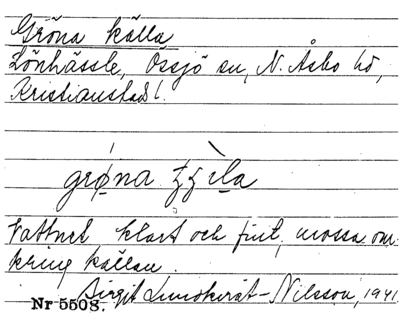 Gröna källa
Lönhässle, Össjö sn, N. Åsbo hd,
Kristianstad l.
Vattnet klart och fint, mossa om-
kring källan.
Birgit Lundkvist-Nilsson, 1941
Nr 5508.